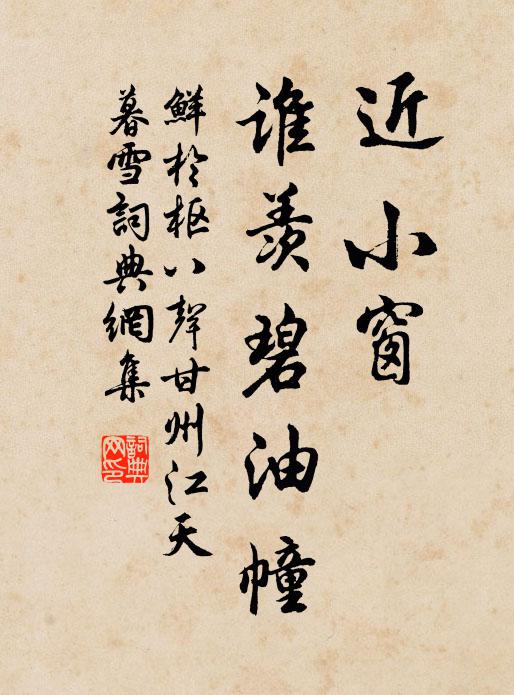 近小窗
谁羡碧油幢
鲜於枢八声甘州江天
暮雪词典网集
词典网印